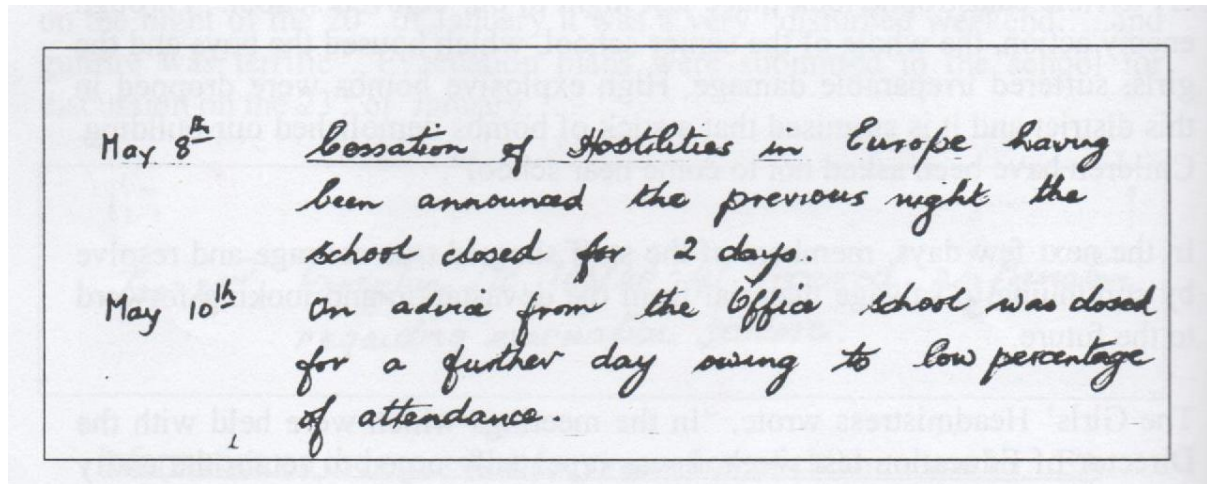 May 8th Cessation of Hostilities in Europe having
been announced the previous night the
school closed for 2 days.
May 10th On advice from the Office school was closed
for a further day owing to low percentage
of attendance.